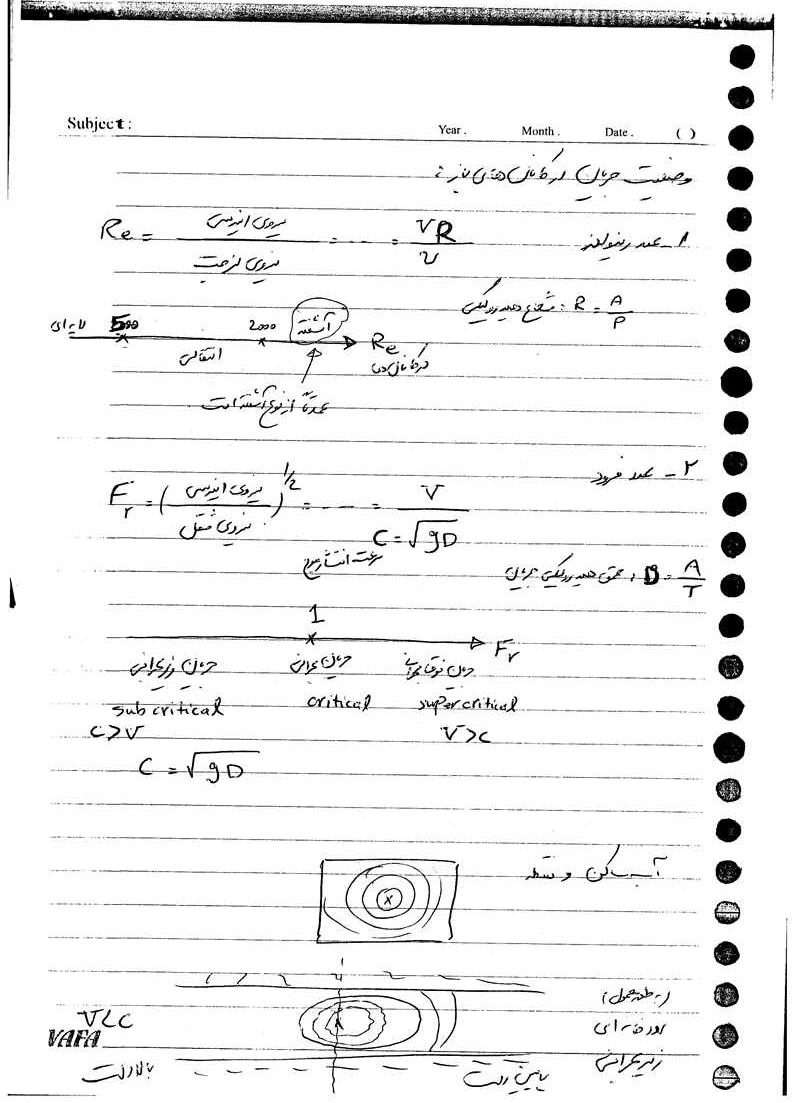 Subject:
Year . Month . Date . ( )
وضعیت جریان در کانال های باز :
۱- عدد رینولدز Re = نیروی اینرسی / نیروی لزجت = ... = VR / ν
شعاع هیدرولیکی : R = A / P
لایه ای 500 2000 آشفته Re
انتقالی در کانال
عمدتاً از نوع آشفته است
۲- عدد فرود
Fr = (نیروی اینرسی / نیروی ثقل)^1/2 = ... = V / C = √gD
سرعت انتشار موج
عمق هیدرولیکی جریان : D = A / T
1
Fr
جریان زیربحرانی جریان بحرانی جریان فوق بحرانی
sub critical critical super critical
C>V V>C
C = √gD
آب ساکن و
(به طور معمول)
رودخانه ای
V<C
زیربحرانی
VAFA
بالادست پایین دست